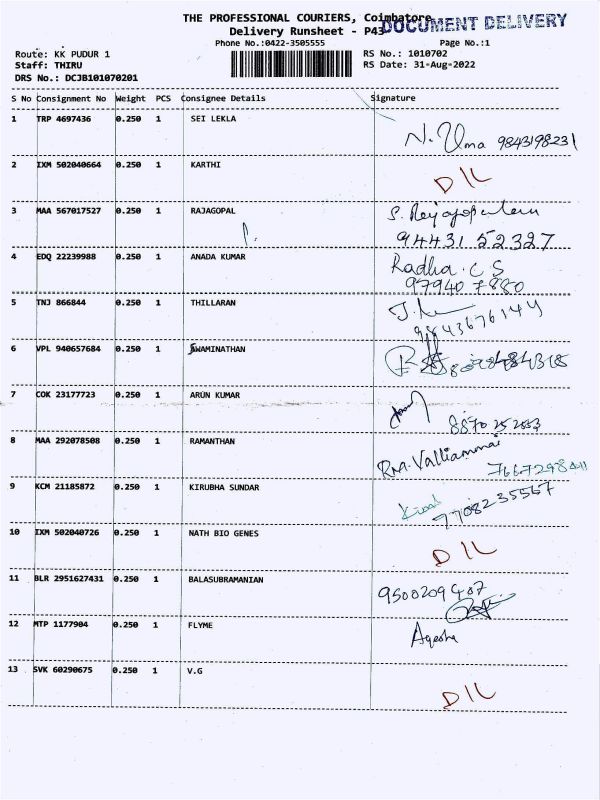 THE PROFESSIONAL COURIERS, Coimbatore
DOCUMENT DELIVERY
Delivery Runsheet - P43
Phone No.:0422-3505555 Page No.:1
Route: KK PUDUR 1 RS No.: 1010702
Staff: THIRU RS Date: 31-Aug-2022
DRS No.: DCJB101070201
S No Consignment No Weight PCS Consignee Details Signature
1 TRP 4697436 0.250 1 SEI LEKLA
N. Uma 9843198231
2 IXM 502040664 0.250 1 KARTHI
D I L
3 MAA 567017527 0.250 1 RAJAGOPAL
S. Rejagopalan
94431 52327
4 EDQ 22239988 0.250 1 ANADA KUMAR
Radha . C S
97940 7880
5 TNJ 866844 0.250 1 THILLARAN
9843676144
6 VPL 940657684 0.250 1 SWAMINATHAN
7 COK 23177723 0.250 1 ARUN KUMAR
8870252553
8 MAA 292078508 0.250 1 RAMANTHAN
RM. Valliammai
9 KCM 21185872 0.250 1 KIRUBHA SUNDAR
7708235567
10 IXM 502040726 0.250 1 NATH BIO GENES
D I L
11 BLR 2951627431 0.250 1 BALASUBRAMANIAN
9500209407
12 MTP 1177904 0.250 1 FLYME
Ayesha
13 SVK 60290675 0.250 1 V.G
D I L